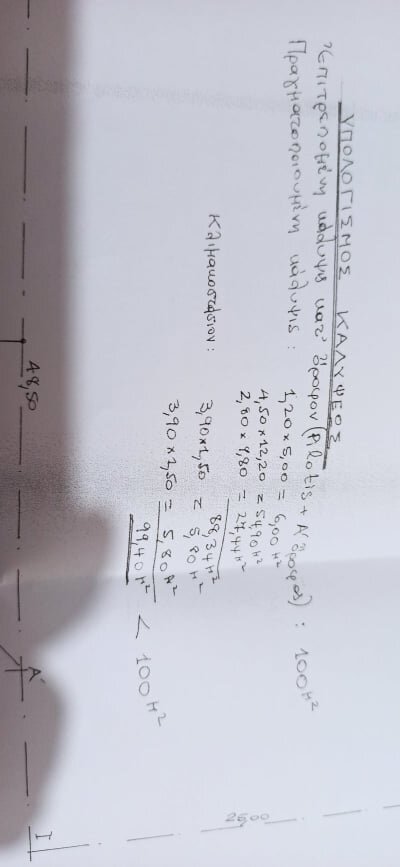 ΥΠΟΛΟΓΙΣΜΟΣ ΚΑΛΥΨΕΟΣ
Ἐπιτρεπομένη κάλυψις κατ' ὄροφον (Pilotis + Α' ὄροφος) : 100 Μ²
Πραγματοποιουμένη κάλυψις :
1,20 x 5,00 = 6,00 Μ²
4,50 x 12,20 = 54,90 Μ²
2,80 x 9,80 = 27,44 Μ²
88,34 Μ²
Κλιμακοστάσιον : 3,90 x 1,50 = 5,80 Μ²
3,90 x 1,50 = 5,80 Μ²
99,40 Μ² < 100 Μ²
25,00
48,50
Α'
Ι